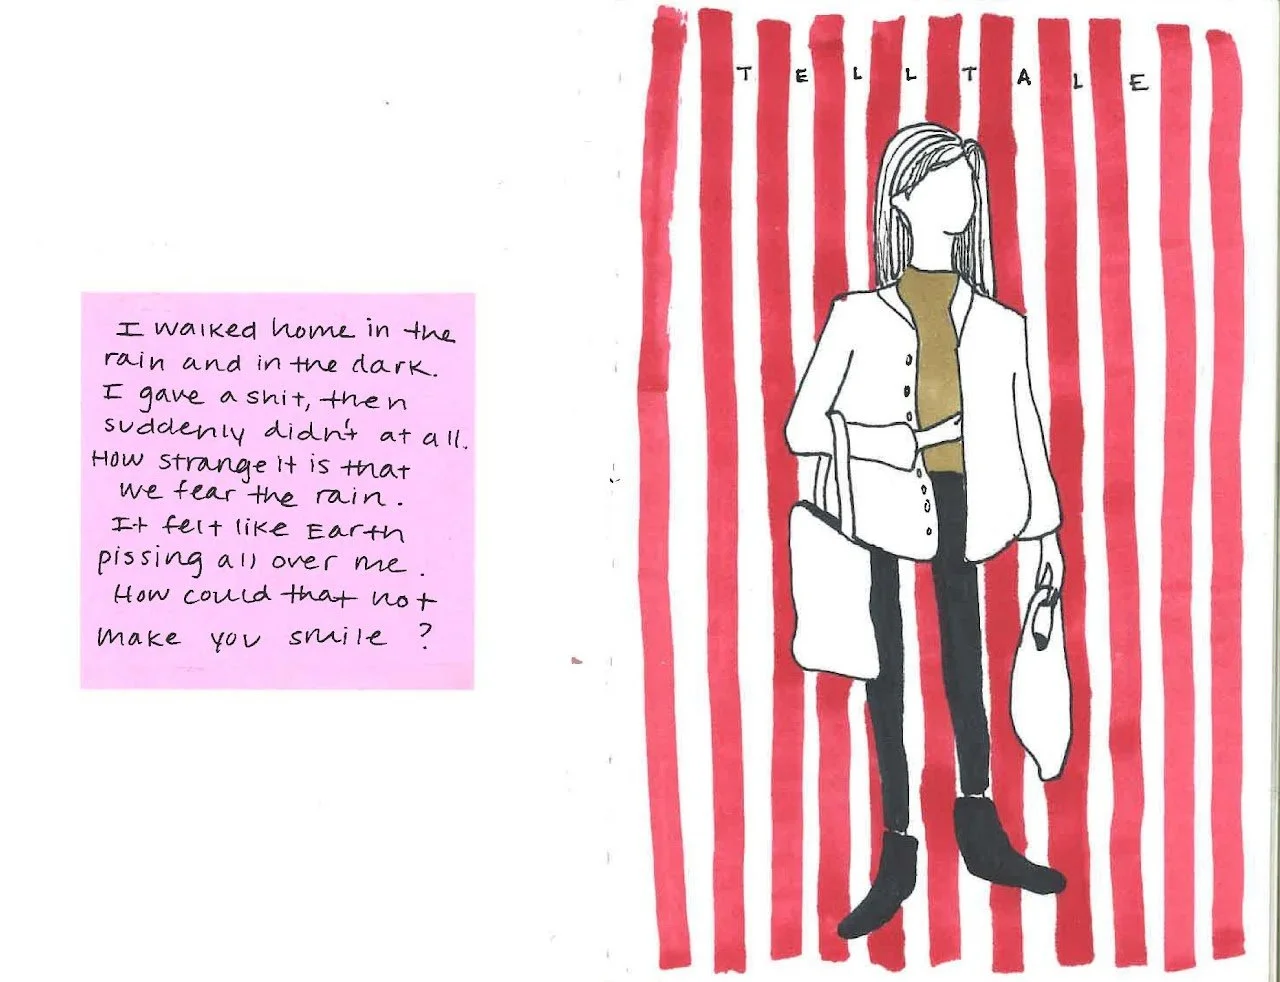 I walked home in the
rain and in the dark.
I gave a shit, then
suddenly didn't at all.
How strange it is that
we fear the rain.
It felt like Earth
pissing all over me.
How could that not
make you smile?
TELLTALE